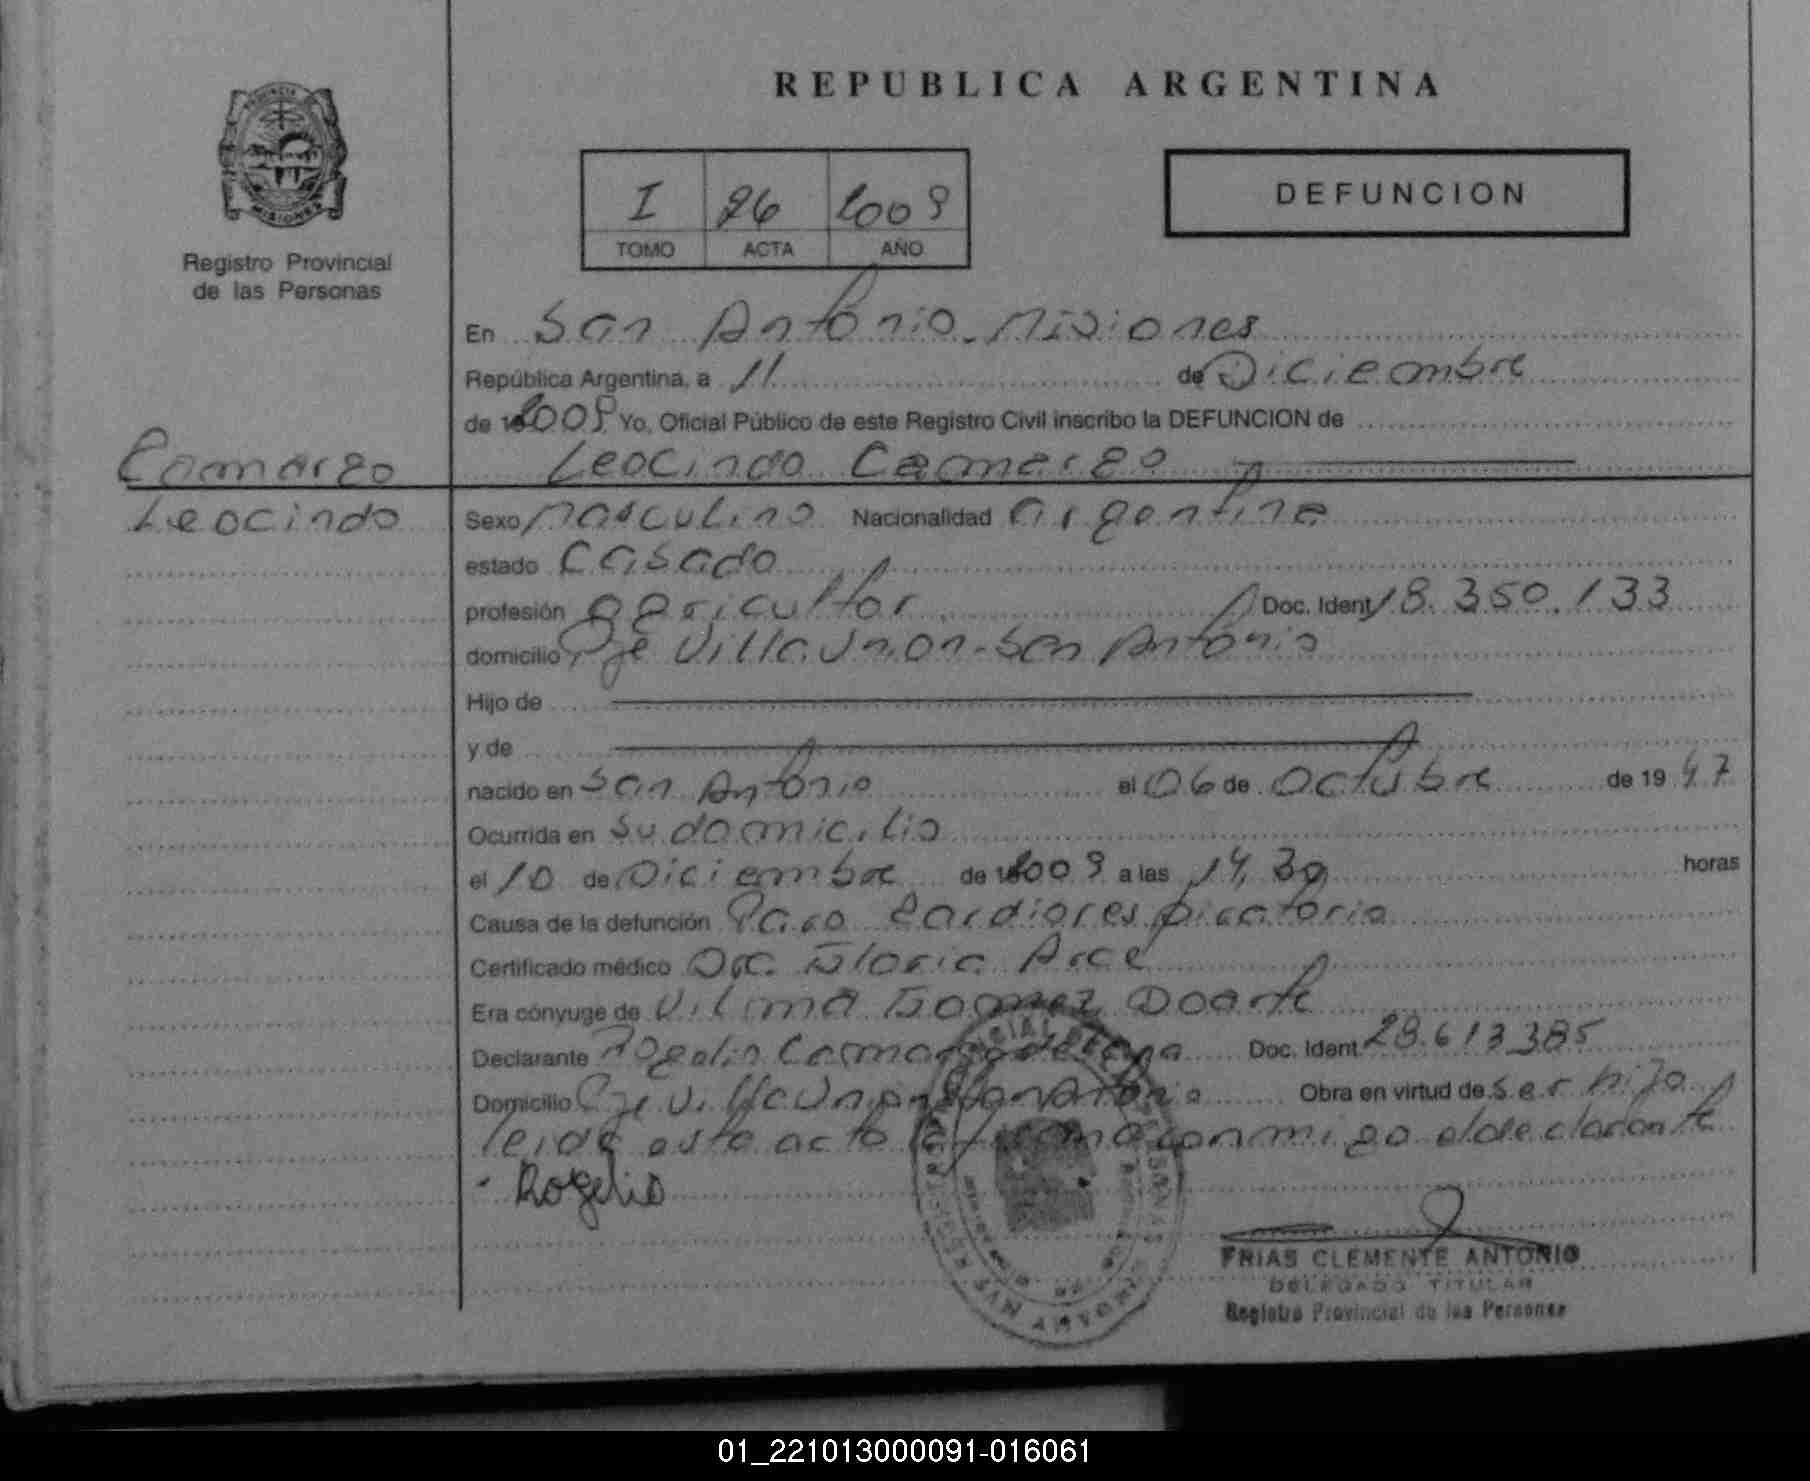 REPUBLICA ARGENTINA
PROVINCIA DE
MISIONES
Registro Provincial
de las Personas
I 26 2009
TOMO ACTA AÑO
DEFUNCION
En San Antonio - Misiones
República Argentina, a 11 de Diciembre
de 2009 Yo, Oficial Público de este Registro Civil inscribo la DEFUNCION de
Leocindo Camargo
Camargo
Leocindo
Sexo Masculino Nacionalidad Argentina
estado Casado
profesión agricultor Doc. Ident 18.350.133
domicilio Pje Villa Union - San Antonio
Hijo de
y de
nacido en San Antonio el 06 de Octubre de 1947
Ocurrida en Su domicilio
el 10 de Diciembre de 2009 a las 14,30 horas
Causa de la defunción Paro Cardiorespiratorio
Certificado médico Dra. Gloria Arce
Era cónyuge de Vilma Gomez Doarte
Declarante Rogelio Camargo Doc. Ident 28.613.385
Domicilio Pje Villa Union San Antonio Obra en virtud de ser hijo
leida esta acta la firma conmigo el declarante
Rogelio
FRIAS CLEMENTE ANTONIO
DELEGADO TITULAR
Registro Provincial de las Personas
01_221013000091-016061